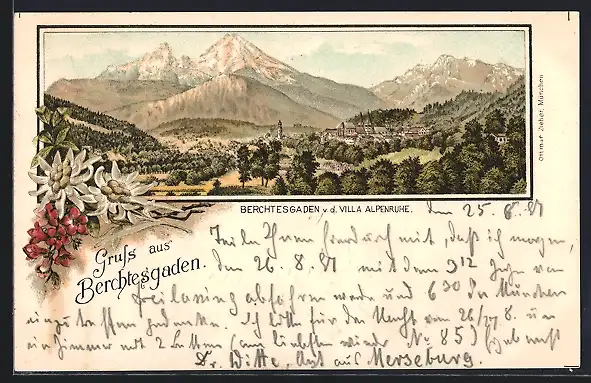 Ottmar Zieher, München
BERCHTESGADEN v. d. VILLA ALPENRUHE.
Gruss aus
Berchtesgaden.
den 25. 8. 91
Teile Ihnen hierdurch mit, daß ich morgen,
den 26. 8. 91 mit dem 3 12 Zuge von
Freilassing abfahren werde und 6 30 in München
einzutreffen gedenke. Ich bitte für die Nacht vom 26/27 8. um
ein Zimmer mit 2 Betten (am liebsten wieder No 85)
Dr. Witte, Arzt aus Merseburg.